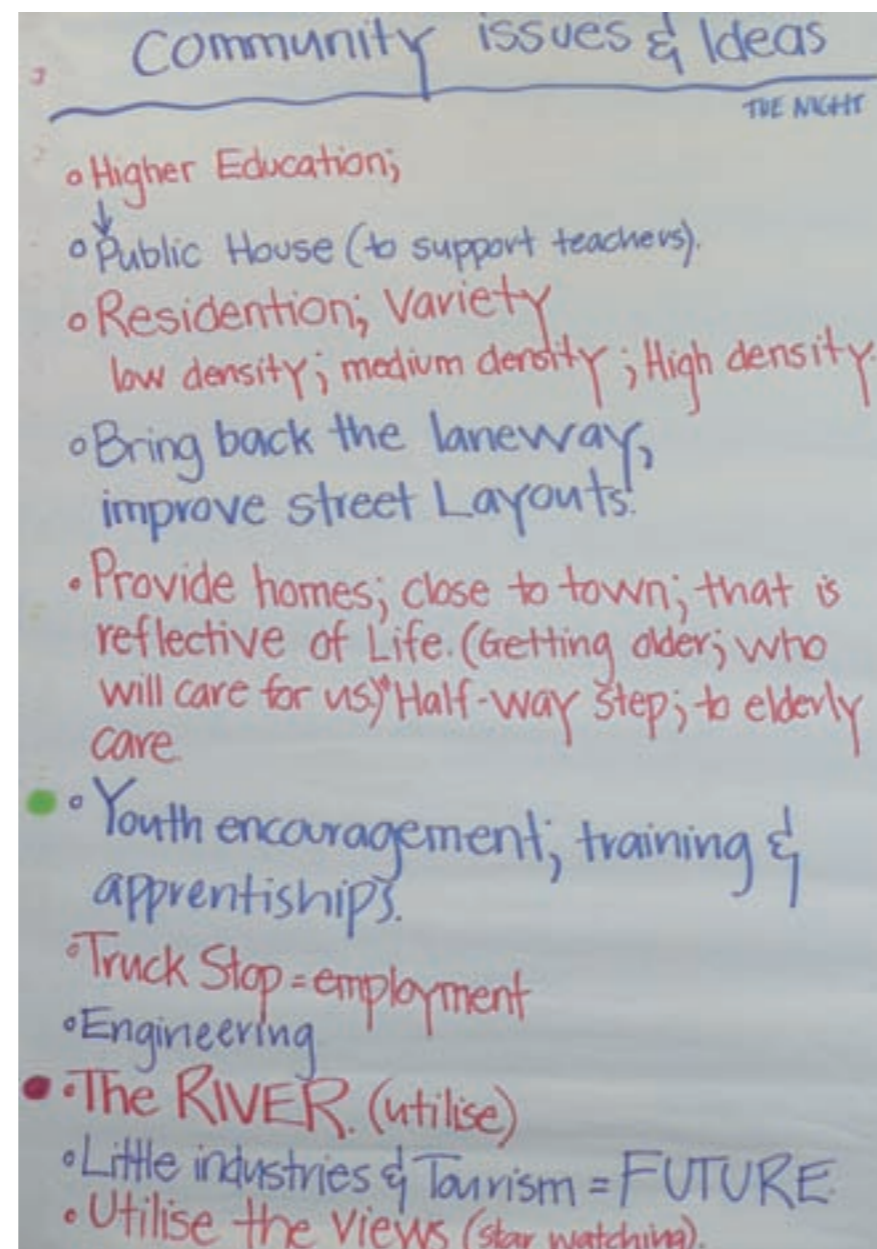 Community issues & Ideas
THE NIGHT
Higher Education;
↓
Public House (to support teachers).
Residention; Variety
low density; medium density; High density
Bring back the laneway,
improve street Layouts!
Provide homes; close to town; that is
reflective of Life. (Getting older; who
will care for us)" Half-way step; to elderly
care
Youth encouragement; training &
apprentiships.
Truck Stop = employment
Engineering
The RIVER. (utilise)
Little industries & Tourism = FUTURE
Utilise the views (star watching).